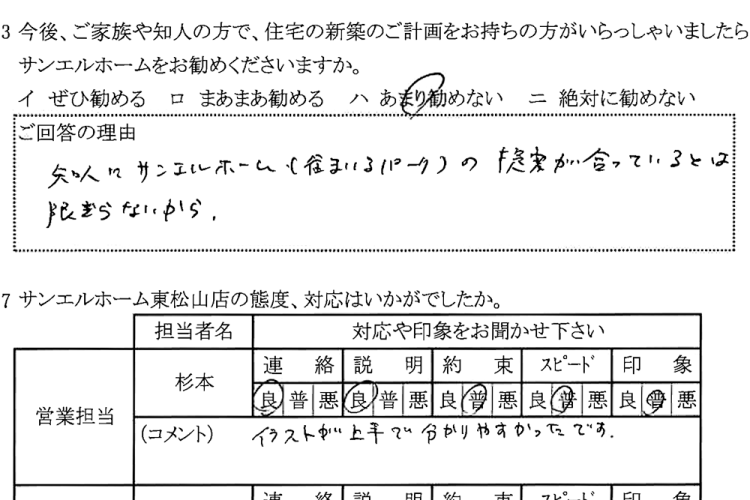 3 今後、ご家族や知人の方で、住宅の新築のご計画をお持ちの方がいらっしゃいましたら
サンエルホームをお勧めくださいますか。
イ ぜひ勧める ロ まあまあ勧める ハ あまり勧めない ニ 絶対に勧めない
ご回答の理由
知人にサンエルホーム(住まいるパーク)の提案が合っているとは
限ぎらないから.
7 サンエルホーム東松山店の態度、対応はいかがでしたか。
担当者名 対応や印象をお聞かせ下さい
営業担当 杉本 連絡 説明 約束 スピード 印象
良 普 悪 良 普 悪 良 普 悪 良 普 悪 良 普 悪
(コメント) イラストが上手で分かりやすかったです.
連絡 説明 約束 スピード 印象